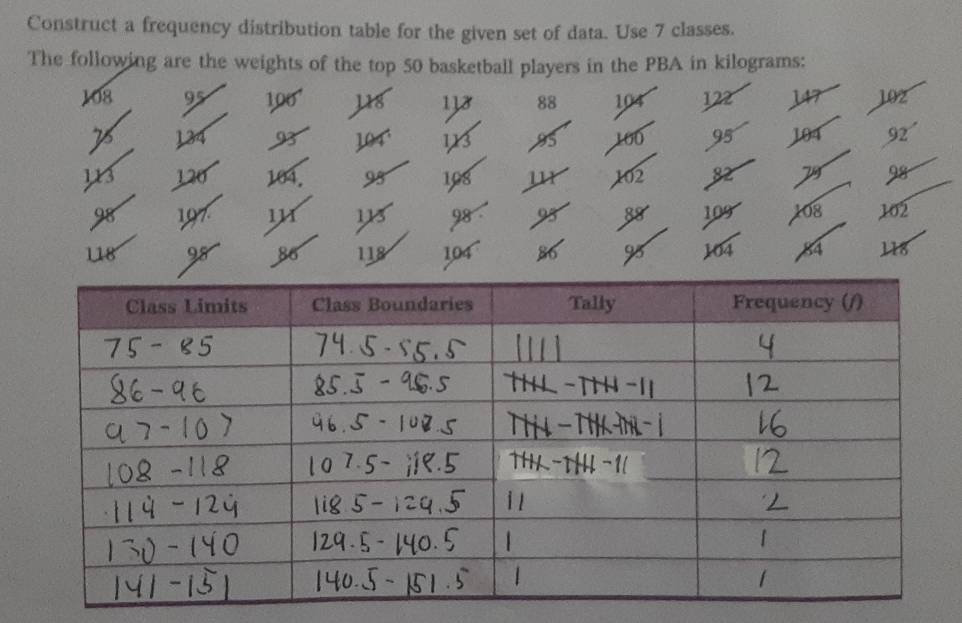 Construct a frequency distribution table for the given set of data. Use 7 classes.
The following are the weights of the top 50 basketball players in the PBA in kilograms:
108 95 100 118 113 88 104 122 147 102
75 134 93 104 113 95 100 95 104 92
113 120 104 95 108 111 102 82 79 98
98 107 111 113 98 95 88 109 108 102
118 98 86 118 104 86 95 104 84 118
Class Limits Class Boundaries Tally Frequency (f)
75 - 85 74.5 - 85.5 4
86 - 96 85.5 - 96.5 12
97 - 107 96.5 - 107.5 16
108 - 118 107.5 - 118.5 12
119 - 129 118.5 - 129.5 2
130 - 140 129.5 - 140.5 1
141 - 151 140.5 - 151.5 1